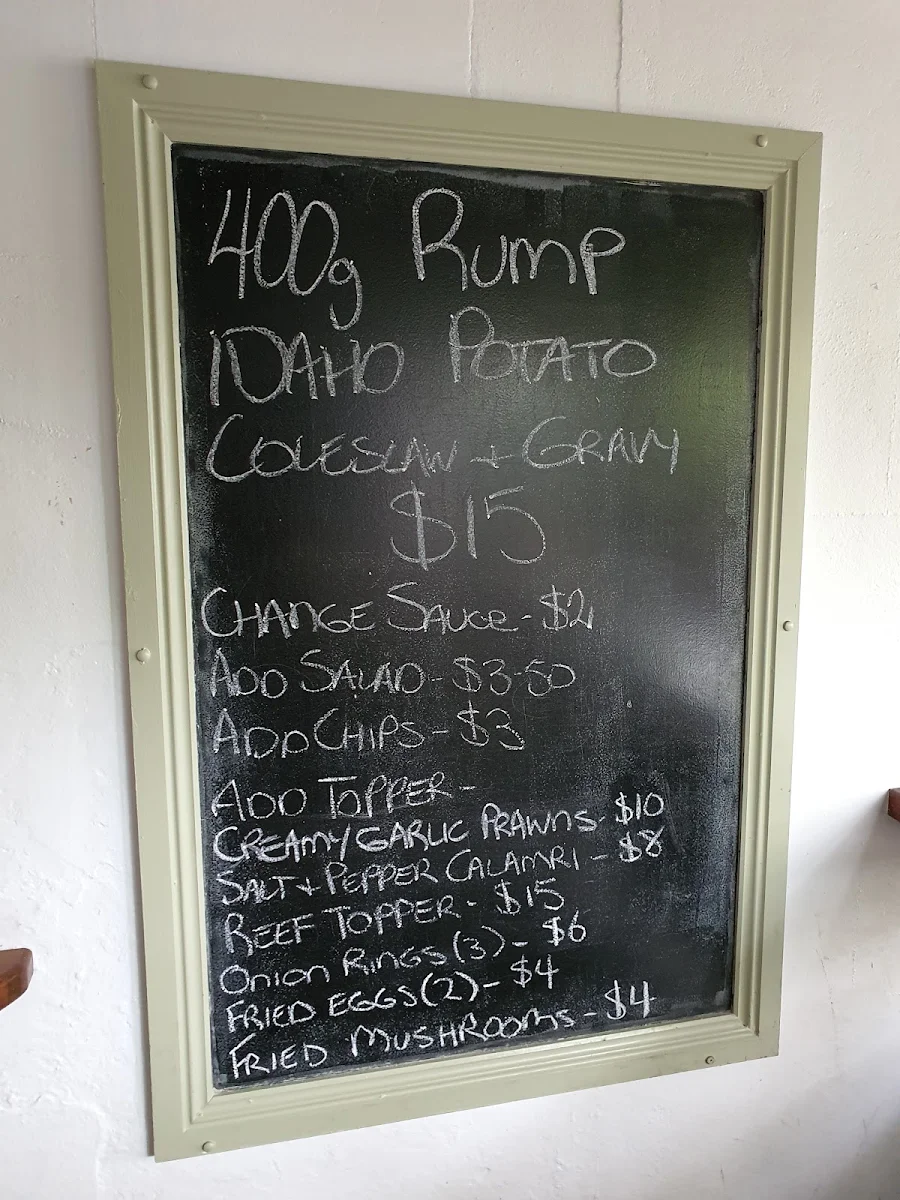 400g Rump
IDAHO POTATO
COLESLAW + GRAVY
$15
CHANGE SAUCE - $2
ADD SALAD - $3-50
ADD CHIPS - $3
ADD TOPPER -
CREAMY GARLIC PRAWNS - $10
SALT + PEPPER CALAMRI - $8
REEF TOPPER - $15
ONION RINGS (3) - $6
FRIED EGGS (2) - $4
FRIED MUSHROOMS - $4